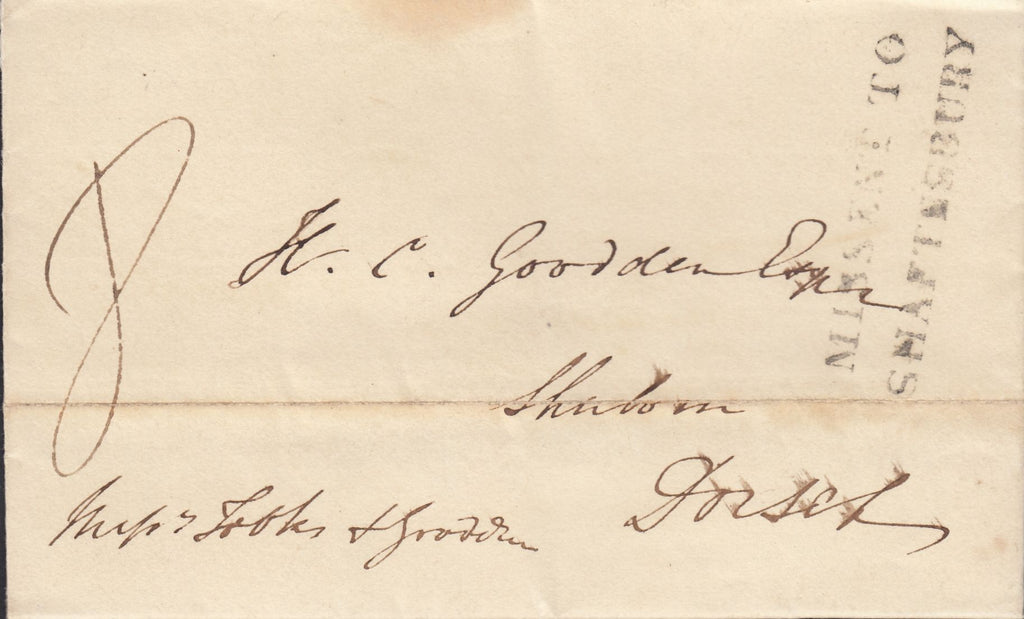 8
H. C. Goodden Esqr
Sherborn
Dorset
Messrs Tooks & Goodden
MISSENT TO
SHAFTESBURY